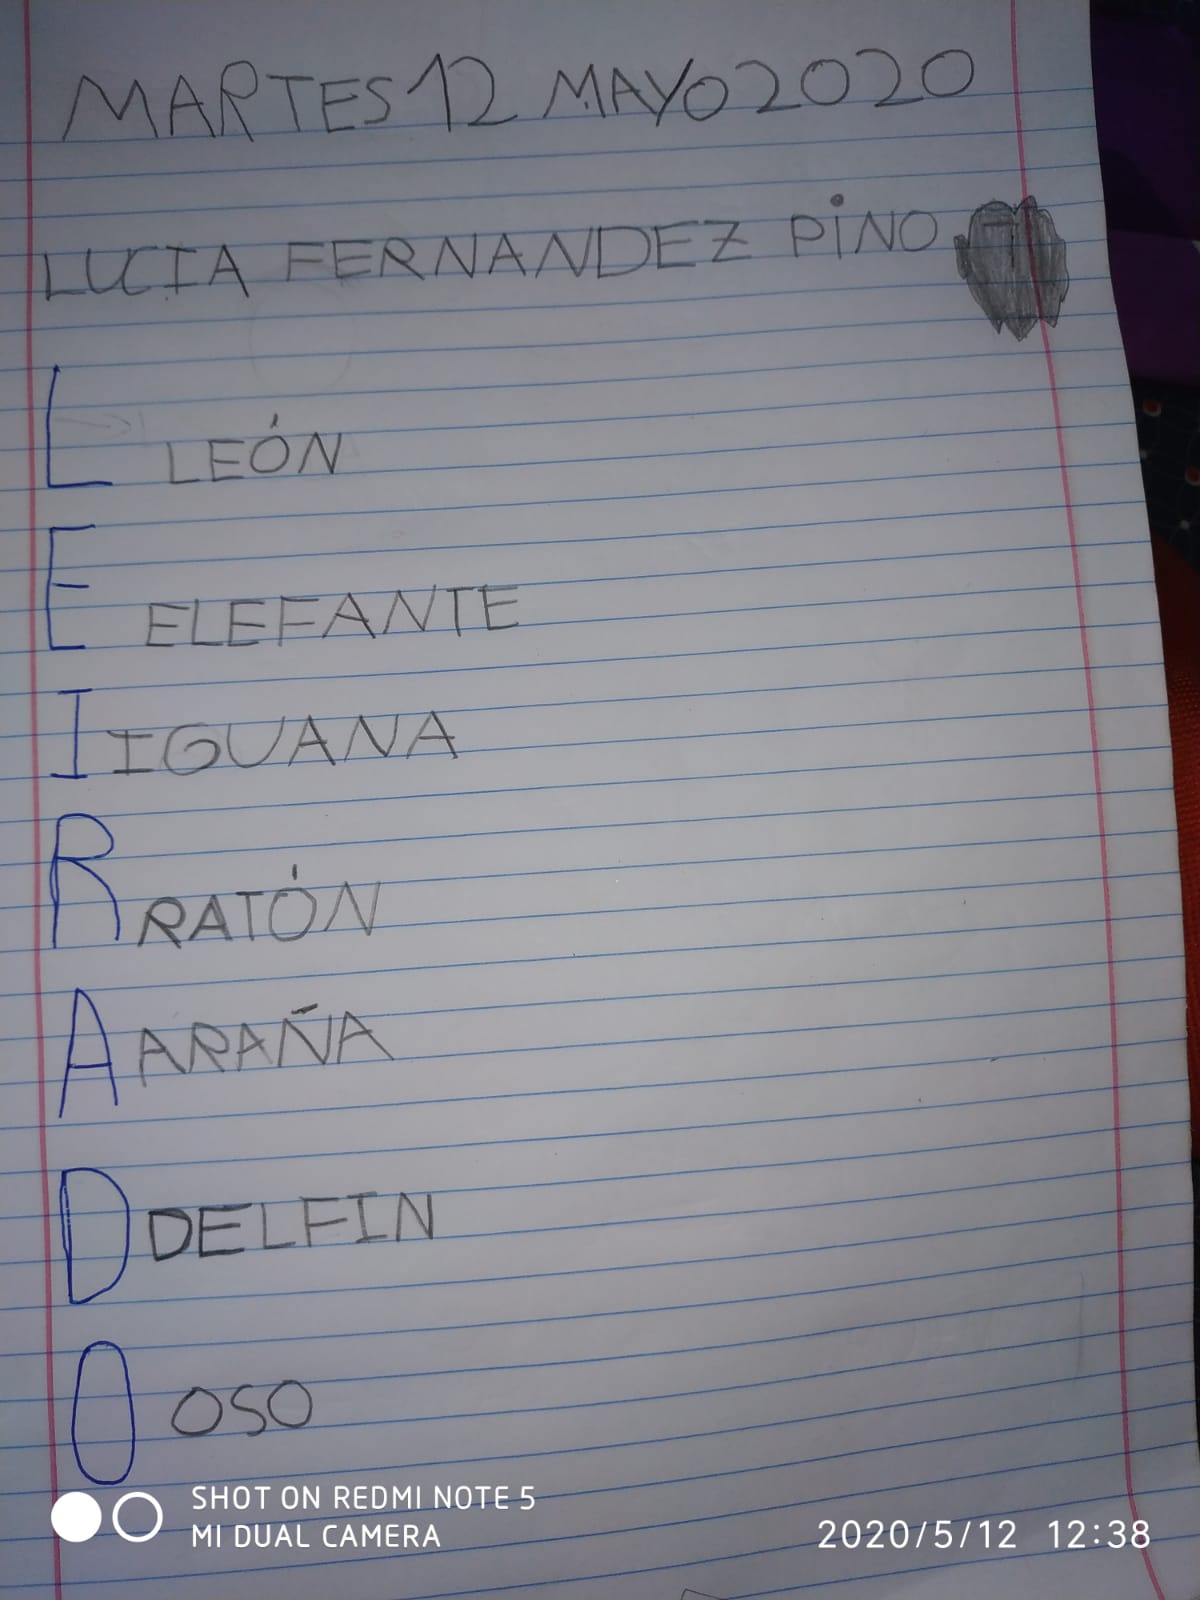 MARTES 12 MAYO 2020
LUCIA FERNANDEZ PiNO
L LEÓN
E ELEFANTE
I IGUANA
R RATÓN
A ARAÑA
D DELFIN
O OSO
SHOT ON REDMI NOTE 5
MI DUAL CAMERA
2020/5/12 12:38